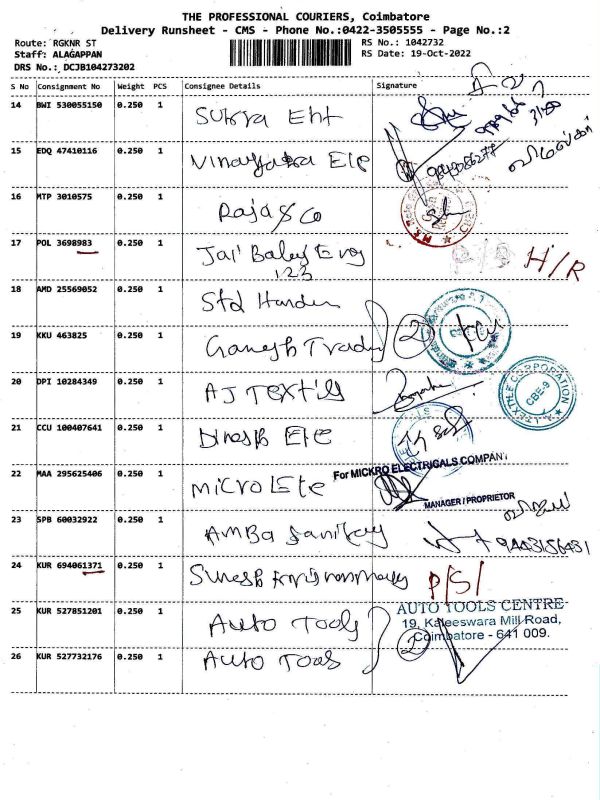 THE PROFESSIONAL COURIERS, Coimbatore
Delivery Runsheet - CMS - Phone No.:0422-3505555 - Page No.:2
Route: RGKNR ST RS No.: 1042732
Staff: ALAGAPPAN RS Date: 19-Oct-2022
DRS No.: DCJB104273202
S No Consignment No Weight PCS Consignee Details Signature
14 BWI 530055150 0.250 1
15 EDQ 47410116 0.250 1 Vinayaka Ele
16 MTP 3010575 0.250 1 Raja & Co
17 POL 3698983 0.250 1 Jai H/R
123
18 AMD 25569052 0.250 1 Std
19 KKU 463825 0.250 1 Ganesh Trading 2
20 DPI 10284349 0.250 1 AJ Textiles
A.J. TEXTILE CORPORATION
CBE-9
21 CCU 100407641 0.250 1 Dinesh Ele
For MICKRO ELECTRICALS COMPANY
22 MAA 295625406 0.250 1 Micro Ele
MANAGER / PROPRIETOR
23 SPB 60032922 0.250 1 Amba Sanitary 9443156431
24 KUR 694061371 0.250 1 Suresh P/S/
25 KUR 527851201 0.250 1 Auto Tools
AUTO TOOLS CENTRE
19, Kaleeswara Mill Road,
Coimbatore - 641 009.
26 KUR 527732176 0.250 1 Auto Tools 2